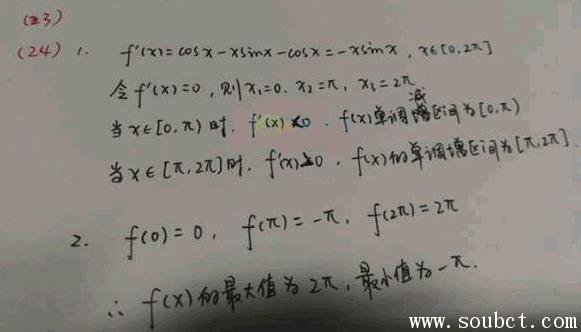 (23)
(24) 1. f'(x)=cosx-xsinx-cosx=-xsinx, x∈[0,2π]
令f'(x)=0, 则x₁=0. x₂=π, x₃=2π
当x∈[0,π)时. f'(x)<0. f(x)单调减区间为[0,π)
当x∈[π,2π]时. f'(x)≥0. f(x)的单调增区间为[π,2π].
2. f(0)=0, f(π)=-π, f(2π)=2π
∴ f(x)的最大值为2π, 最小值为-π.
www.soubct.com